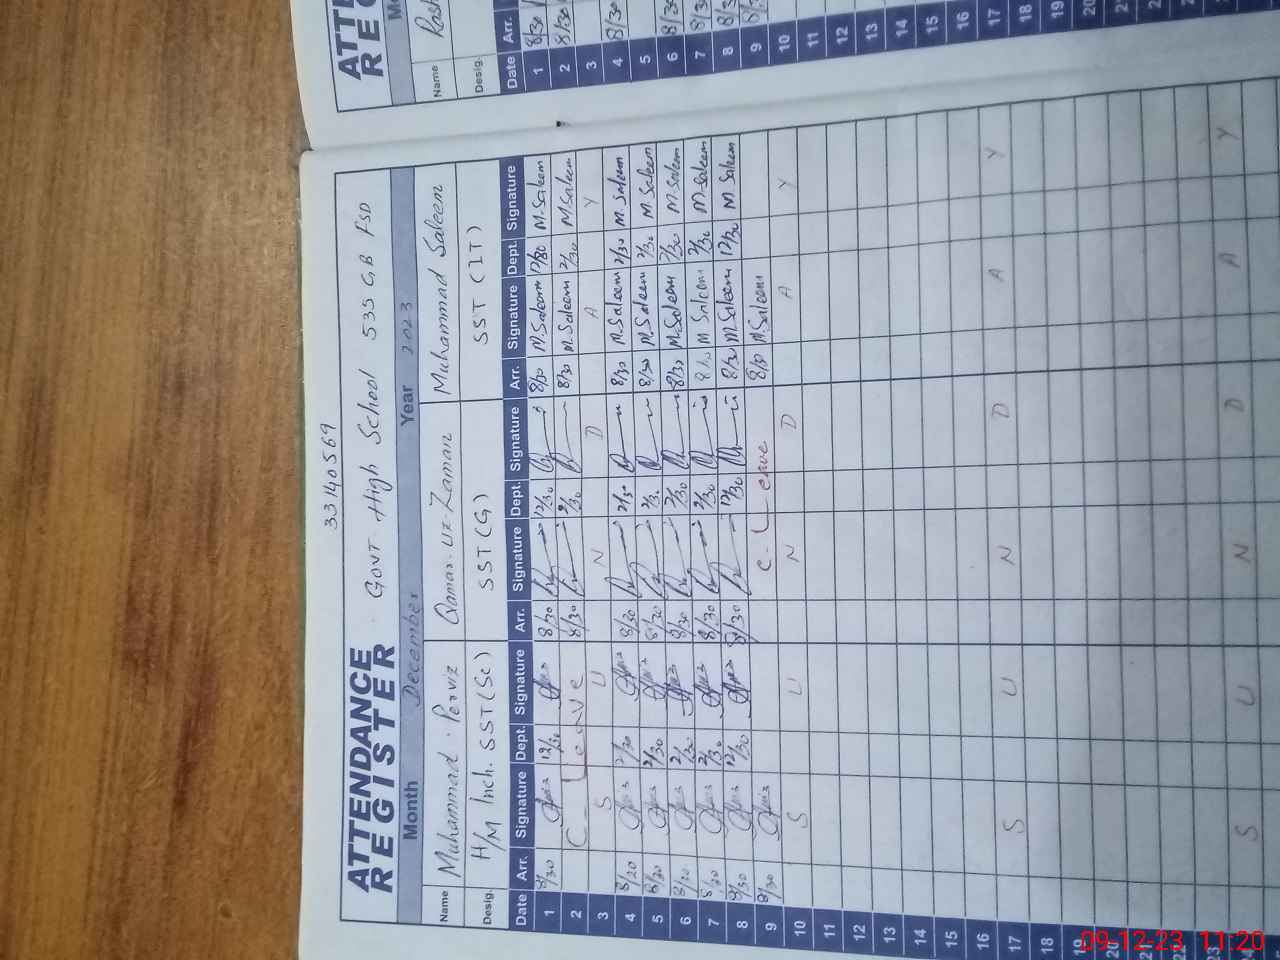 33140569
ATTENDANCE REGISTER
Govt. High School 535 GB FSD
Month December Year 2023
Name Muhammad Perviz Qamar-uz-Zaman Muhammad Saleem
Desig. H/M Inch. SST(Sc) SST(G) SST (IT)
Date Arr. Signature Dept. Signature Arr. Signature Dept. Signature Arr. Signature Dept. Signature
1 8/30 12/30 8/30 12/30 8/30 M.Saleem 12/30 M.Saleem
2 C-Leave 8/30 2/30 8/30 M.Saleem 2/30 M.Saleem
3 S U N D A Y
4 8/30 2/30 8/30 2/30 8/30 M.Saleem 2/30 M.Saleem
5 8/30 2/30 8/30 2/30 8/30 M.Saleem 2/30 M.Saleem
6 8/30 2/30 8/30 2/30 8/30 M.Saleem 2/30 M.Saleem
7 8/30 2/30 8/30 2/30 8/30 M.Saleem 2/30 M.Saleem
8 8/30 12/30 8/30 12/30 8/30 M.Saleem 12/30 M.Saleem
9 8/30 C-Leave 8/30 M.Saleem
10 S U N D A Y
11
12
13
14
15
16
17 S U N D A Y
18
19
20
21
22
23
24 S U N D A Y
Name
Desig.
Date Arr.
1 8/30
2 8/30
3
4 8/30
5
6 8/30
7 8/30
8 8/30
9
10
11
12
13
14
15
16
17
18
19
20
09-12-23 11:20